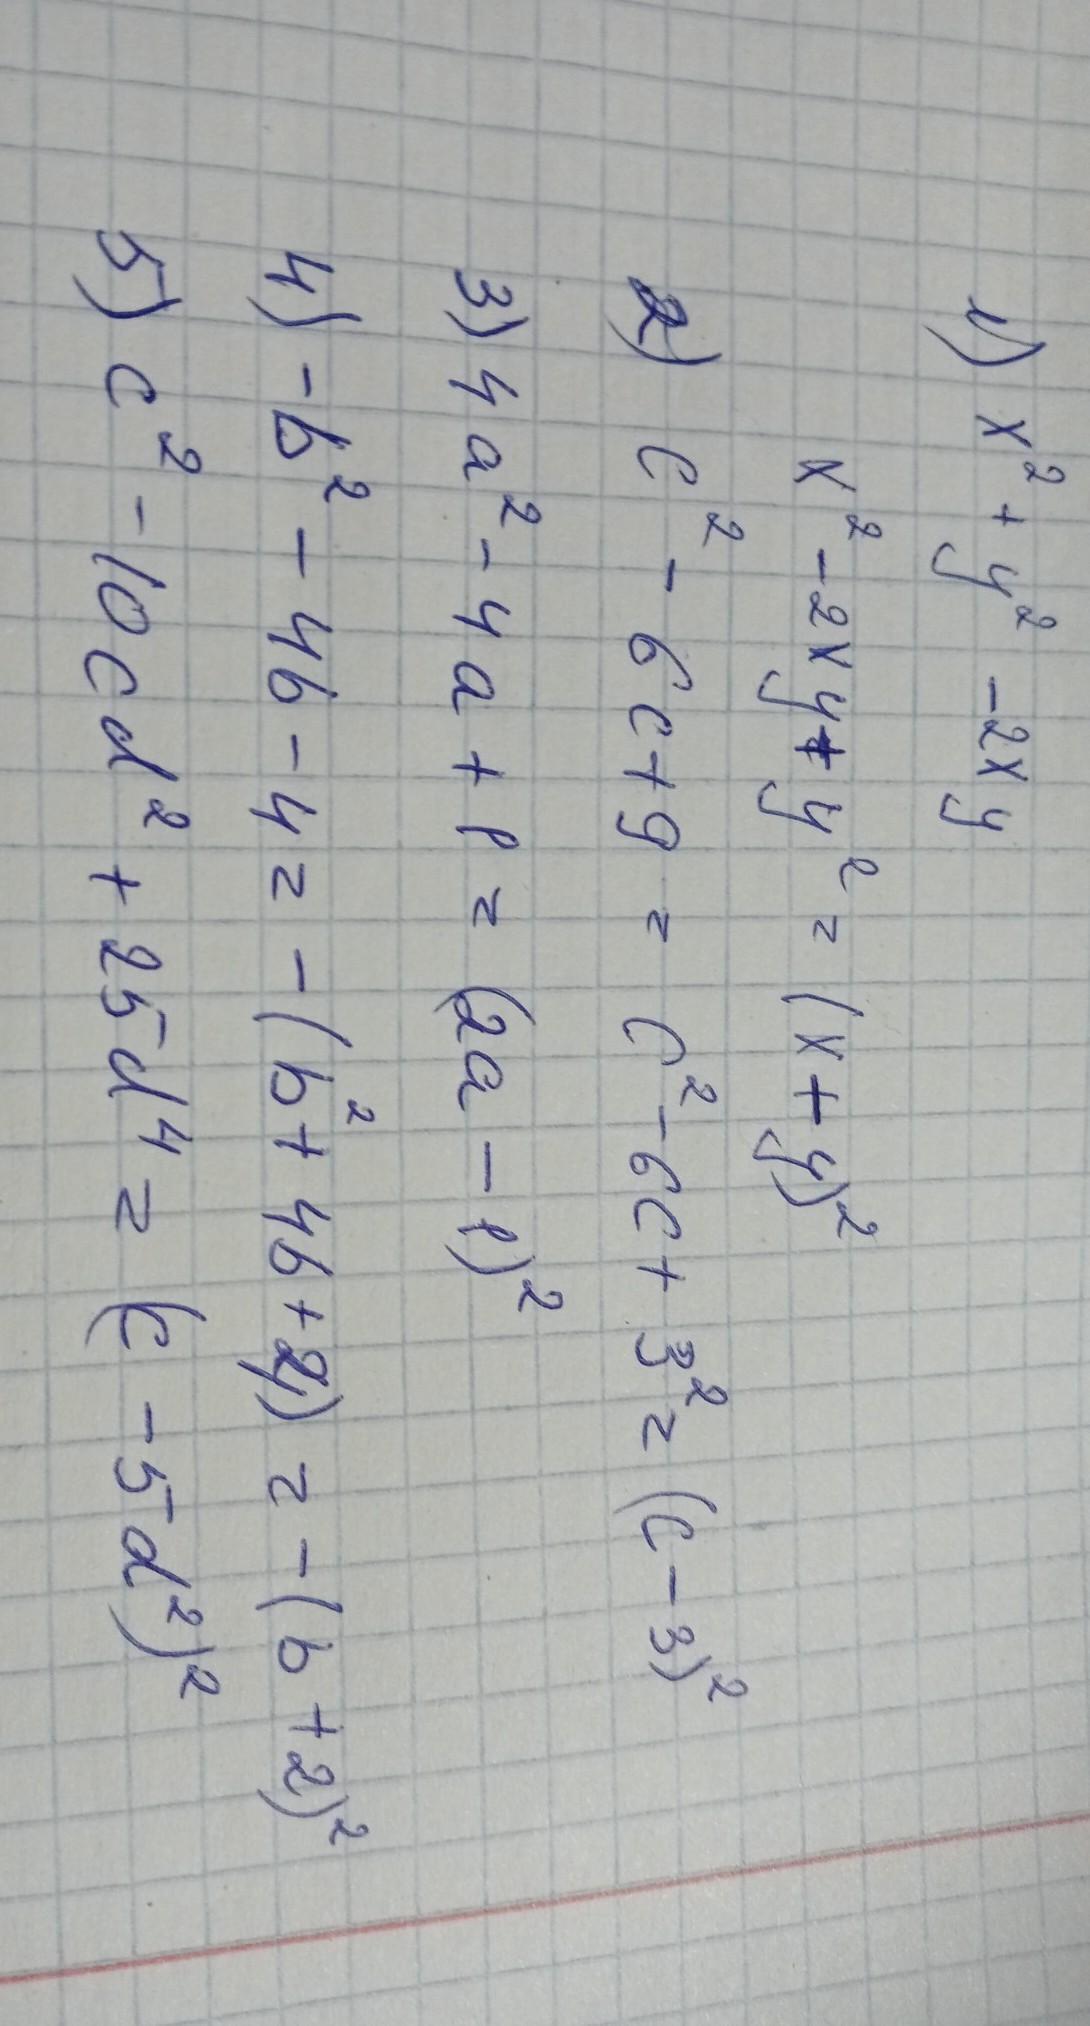 1) x² + y² - 2xy
x² - 2xy + y² = (x + y)²
2) c² - 6c + 9 = c² - 6c + 3² = (c - 3)²
3) 4a² - 4a + 1 = (2a - 1)²
4) -b² - 4b - 4 = -(b² + 4b + 4) = -(b + 2)²
5) c² - 10cd² + 25d⁴ = (c - 5d²)²